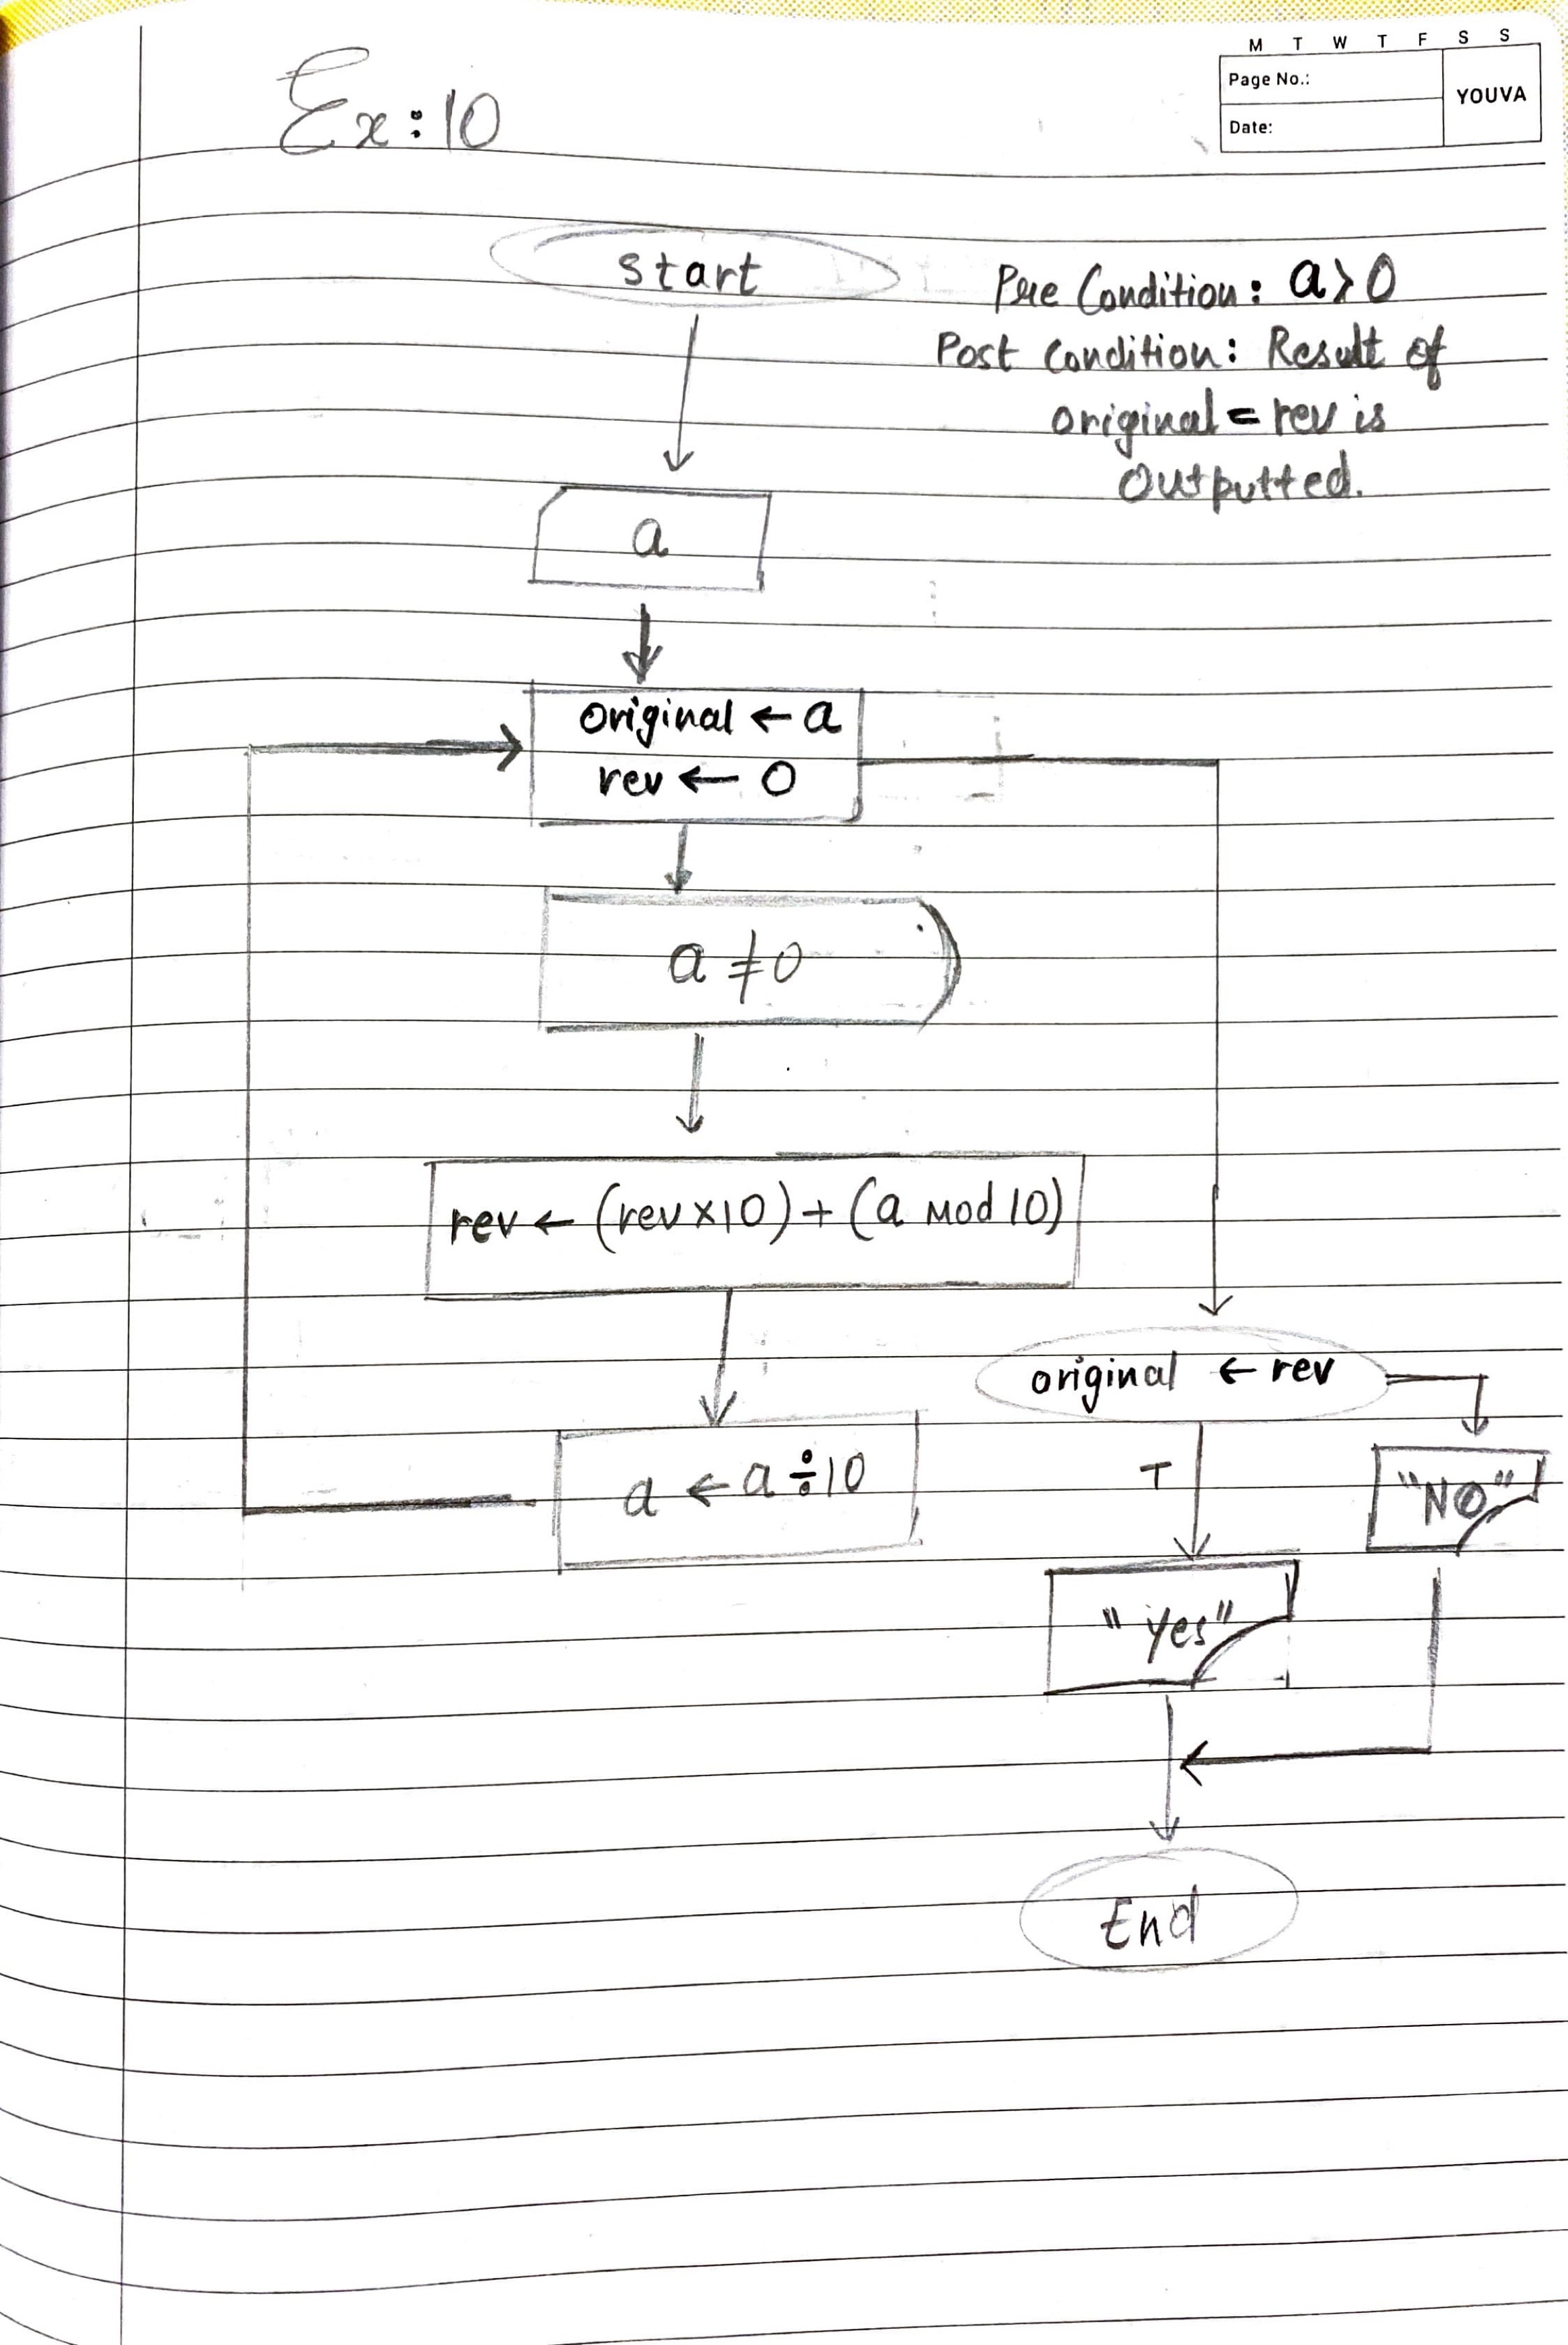 M T W T F S S
Page No.:
YOUVA
Date:
Ex:10
Start
Pre Condition: a>0
Post Condition: Result of
original = rev is
Outputted.
a
original ← a
rev ← 0
a ≠ 0
rev ← (rev×10) + (a Mod 10)
original ← rev
a ← a ÷ 10
T
"NO"
"Yes"
End